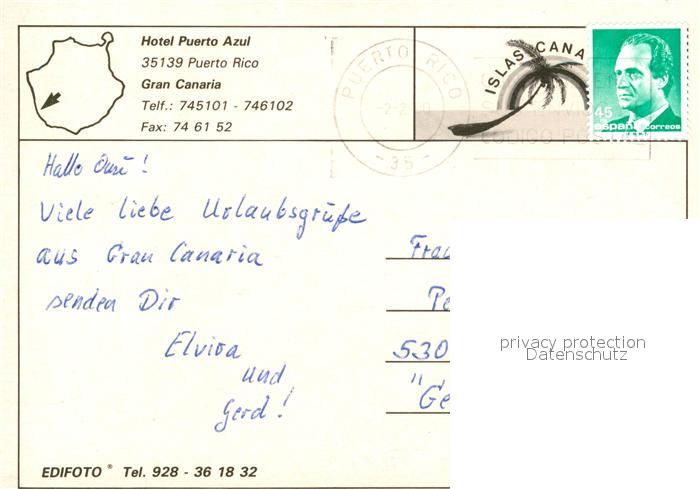 Hotel Puerto Azul
35139 Puerto Rico
Gran Canaria
Telf.: 745101 - 746102
Fax: 74 61 52
PUERTO RICO
-35-
ISLAS CANA
45
españa correos
CODIGO POSTAL
Hallo Omi!
Viele liebe Urlaubsgrüße
aus Gran Canaria
senden Dir
Elvira
und
Gerd!
Frau
530
"Ge
privacy protection
Datenschutz
EDIFOTO ® Tel. 928 - 36 18 32